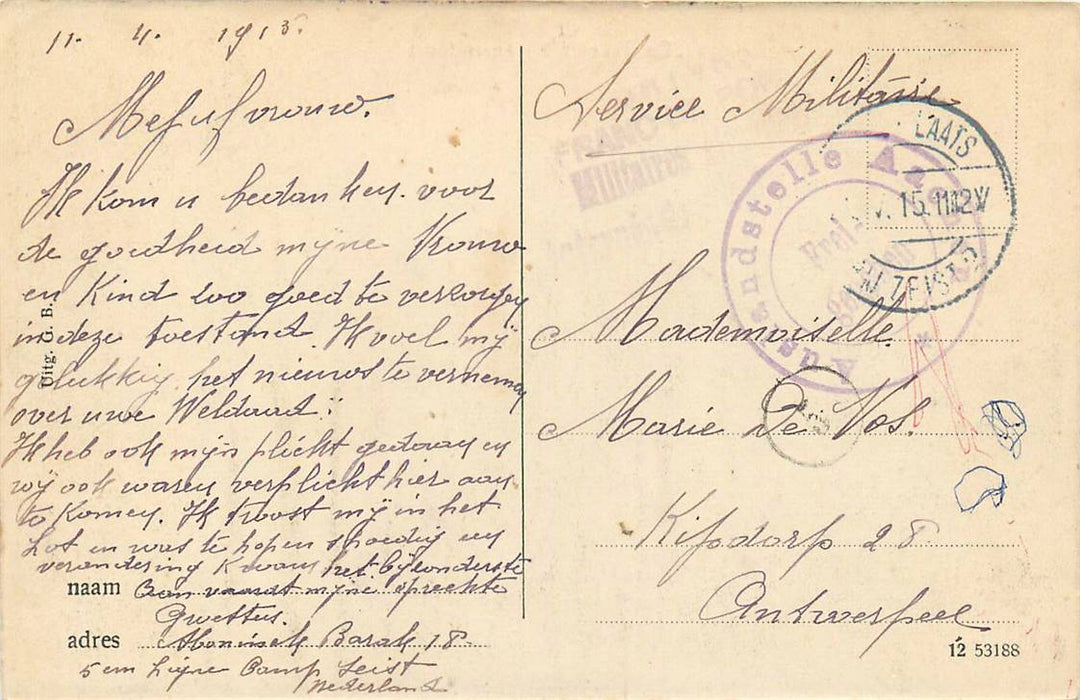 11. 4. 1915.
Mejufvrouw.
Ik kom u bedanken voor
de goedheid mijne Vrouw
en Kind zoo goed te verzorgen
in deze toestand. Ik voel mij
gelukkig het nieuws te vernemen
over uwe Weldaad
Ik heb ook mijn plicht gedaan en
wij ook waren verplicht hier aan
te Komen. Ik troost mij in het
Lot en was te hopen spoedig een
verandering Kwam het bijzonderste
naam aanvaardt mijne oprechte
Groetten.
adres Barak 18
5em Ligne Camp Zeist
Nederland
Uitg. G. B.
Service Militaire
FRANC
Militaires
LAATS
15.11-12V
BIJ ZEIST
Auslandstelle Aachen
Mademoiselle
Marie De Vos.
Kipdorp 28
Antwerpen
12 53188